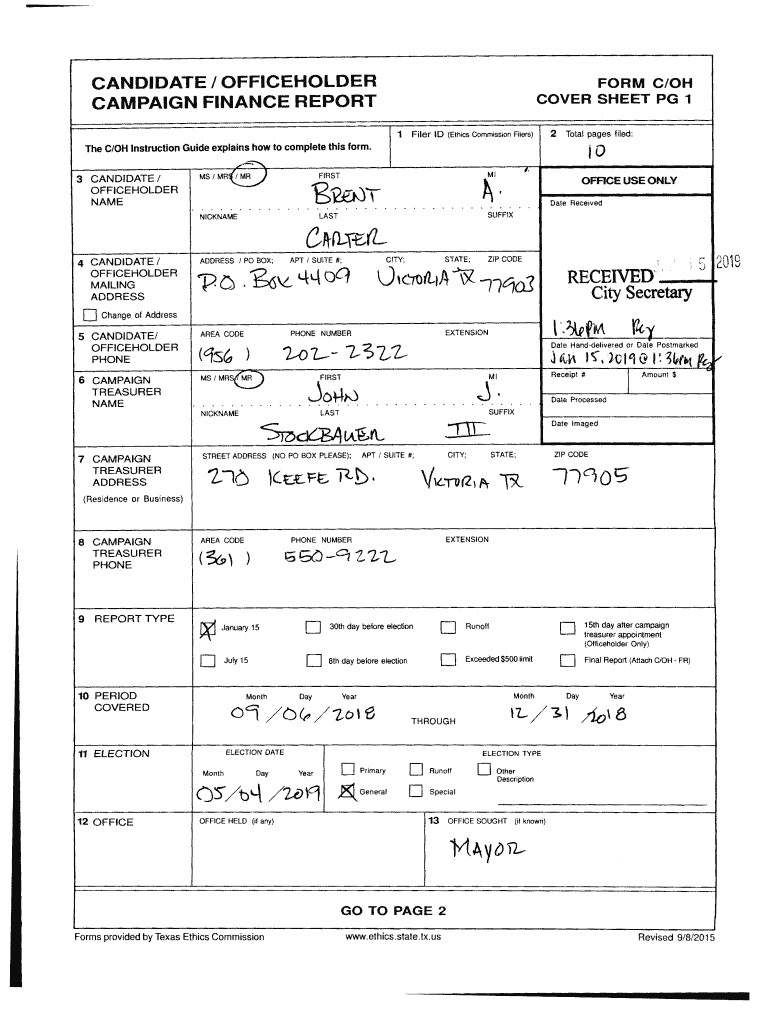 CANDIDATE / OFFICEHOLDER
CAMPAIGN FINANCE REPORT
FORM C/OH
COVER SHEET PG 1
The C/OH Instruction Guide explains how to complete this form.
1 Filer ID (Ethics Commission Filers)
2 Total pages filed:
10
3 CANDIDATE /
OFFICEHOLDER
NAME
MS / MRS / MR FIRST MI
BRENT A.
NICKNAME LAST SUFFIX
CARTER
OFFICE USE ONLY
Date Received
4 CANDIDATE /
OFFICEHOLDER
MAILING
ADDRESS
Change of Address
ADDRESS / PO BOX; APT / SUITE #; CITY; STATE; ZIP CODE
P.O. Box 4409 VICTORIA TX 77903
5 2019
RECEIVED
City Secretary
1:36PM
5 CANDIDATE/
OFFICEHOLDER
PHONE
AREA CODE PHONE NUMBER EXTENSION
(956) 202-2322
Date Hand-delivered or Date Postmarked
Jan 15, 2019 @ 1:36pm
6 CAMPAIGN
TREASURER
NAME
MS / MRS / MR FIRST MI
JOHN J.
NICKNAME LAST SUFFIX
STOCKBAUER III
Receipt # Amount $
Date Processed
Date Imaged
7 CAMPAIGN
TREASURER
ADDRESS
(Residence or Business)
STREET ADDRESS (NO PO BOX PLEASE); APT / SUITE #; CITY; STATE; ZIP CODE
270 KEEFE RD. VICTORIA TX 77905
8 CAMPAIGN
TREASURER
PHONE
AREA CODE PHONE NUMBER EXTENSION
(361) 550-9222
9 REPORT TYPE
January 15 30th day before election Runoff 15th day after campaign
treasurer appointment
(Officeholder Only)
July 15 8th day before election Exceeded $500 limit Final Report (Attach C/OH - FR)
10 PERIOD
COVERED
Month Day Year Month Day Year
09/06/2018 THROUGH 12/31/2018
11 ELECTION
ELECTION DATE
Month Day Year
05/04/2019
ELECTION TYPE
Primary Runoff Other
Description
General Special
12 OFFICE
OFFICE HELD (if any)
13 OFFICE SOUGHT (if known)
MAYOR
GO TO PAGE 2
Forms provided by Texas Ethics Commission www.ethics.state.tx.us Revised 9/8/2015